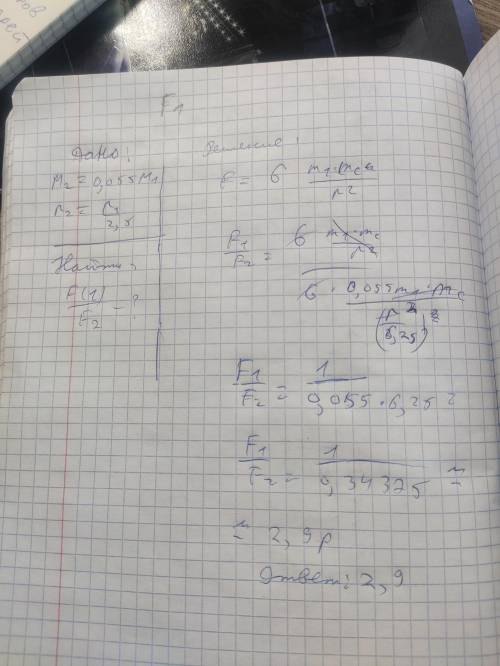 F1
Дано:
M2 = 0,055M1
r2 = r1/2,5
Найти:
F(1)/F2 - ?
Решение:
F = G m1·mc/r2
F1/F2 = G m1·mc/r2
G · 0,055m1·mc
(r2/6,25)
F1/F2 = 1/0,055·6,25
F1/F2 = 1/0,34375 ≈
≈ 2,9р
Ответ: 2,9